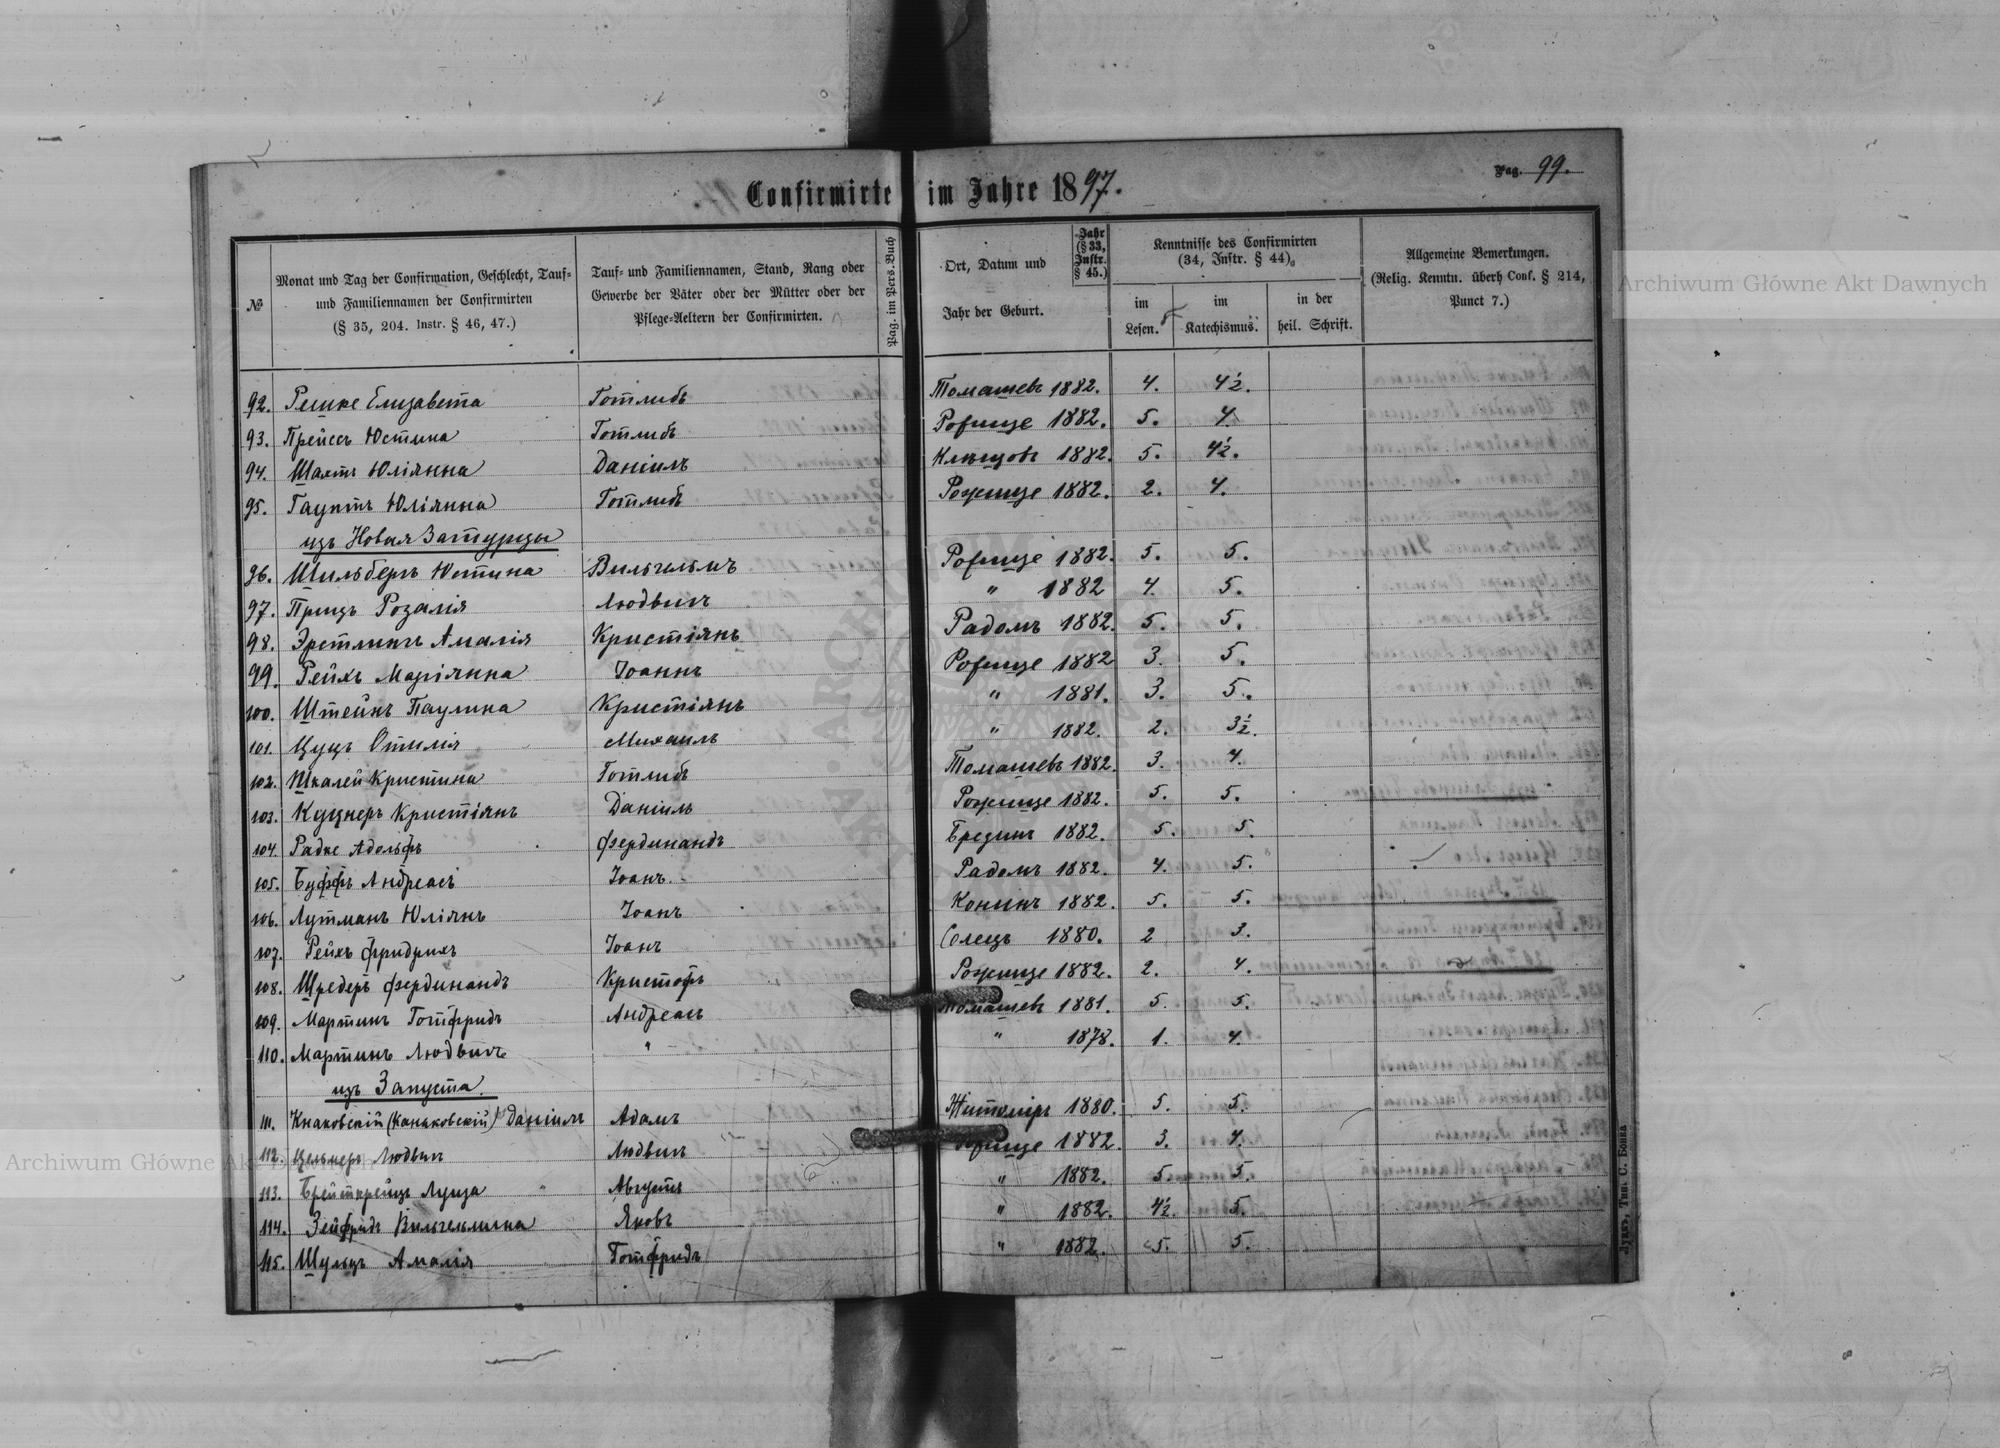 Confirmirte im Jahre 1897.
Pag. 99.
№
Monat und Tag der Confirmation, Geschlecht, Tauf-
und Familiennamen der Confirmirten
(§ 35, 204. Instr. § 46, 47.)
Tauf- und Familiennamen, Stand, Rang oder
Gewerbe der Väter oder der Mütter oder der
Pflege-Aeltern der Confirmirten.
Pag. im Pers.-Buch
Ort, Datum und
Jahr der Geburt.
Jahr
(§ 33,
Instr.
§ 45.)
Kenntnisse des Confirmirten
(34, Instr. § 44)
im
Lesen.
im
Katechismus.
in der
heil. Schrift.
Allgemeine Bemerkungen.
(Relig. Kenntn. überh Conf. § 214,
Punct 7.)
92. Решке Елизавета Готлибъ Томашевъ 1882. 4. 4½.
93. Прейссъ Юстина Готлибъ Рофище 1882. 5. 4.
94. Шахтъ Юлiянна Данiилъ 1882. 5. 4½.
95. Гауптъ Юлiянна Готлибъ Рожище 1882. 2. 4.
изъ Новыя Затурцы
96. Шильбергъ Юстина Вильгельмъ Рофище 1882. 5. 5.
97. Прицъ Розалiя Людвигъ " 1882 4. 5.
98. Эрстлингъ Амалiя Кристiянъ Радомъ 1882. 5. 5.
99. Рейхъ Марiянна Iоаннъ Рофище 1882 3. 5.
100. Штейнъ Паулина Кристiянъ " 1881. 3. 5.
101. Цуцъ Отилiя Михаилъ " 1882. 2. 3½.
102. Шкалей Кристина Готлибъ Томашевъ 1882. 3. 4.
103. Куцнеръ Кристiянъ Данiилъ Рожище 1882. 5. 5.
104. Радке Адольфъ Фердинандъ 1882. 5. 5.
105. Буффъ Андреасъ Iоанъ. Радомъ 1882. 4. 5.
106. Лутманъ Юлiянъ Iоанъ Конинъ 1882. 5. 5.
107. Рейхъ Фридрихъ Iоанъ Солецъ 1880. 2 3.
108. Шредеръ Фердинандъ Кристофъ Рожище 1882. 2. 4.
109. Мартинъ Готфридъ Андреасъ Томашевъ 1881. 5. 5.
110. Мартинъ Людвигъ " " 1878. 1. 4.
изъ Запуста.
111. Кнаковскiй (Каньковскiй) Данiилъ Адамъ Житомiръ 1880. 5. 5.
112. Цельмеръ Людвигъ Людвигъ Рофище 1882. 3. 4.
113. Брейткрейцъ Луиза Августъ " 1882. 5. 5.
114. Зейфридъ Вильгельмина Яковъ " 1882. 4½. 5.
115. Шульцъ Амалiя Готфридъ " 1882. 5. 5.
Луцкъ, Тип. С. Бонка
Archiwum Główne Akt Dawnych
Archiwum Główne Akt Dawnych